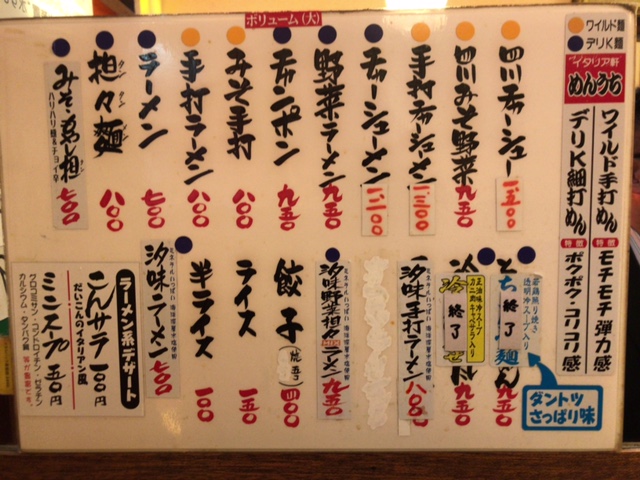 ボリューム(大)
ワイルド麺
デリK麺
イタリア軒
めんうち
ワイルド手打めん
特徴
モチモチ 弾力感
デリK細打めん
特徴
ボクボク・コリコリ感
四川チャーシュー 一、五〇〇
四川みそ野菜 九五〇
手打チャーシューメン 一、三〇〇
チャーシューメン 一、二〇〇
野菜ラーメン 九五〇
チャンポン 九五〇
みそ手打 八〇〇
手打ラーメン 八〇〇
ラーメン 七〇〇
担々麺 八〇〇
タンタンメン
七〇〇
若鶏照り焼き
透明冷スープ入り
終了
九五〇
ダントツ
さっぱり味
正油味冷スープ
カニ肉キャベツ入り
終了
九五〇
汐味手打ラーメン 八〇〇
汐味野菜担ラーメン 九五〇
餃子 (焼) 四〇〇
ライス 一五〇
半ライス 一〇〇
汐味ラーメン 七〇〇
ラーメン系デザート
だいこんのイタリアン風
こんサラ 一〇〇円
ミニスープ 五〇円
グロコミサン・コンドロイチン・ゼラチン
カルシウム・タンパク質